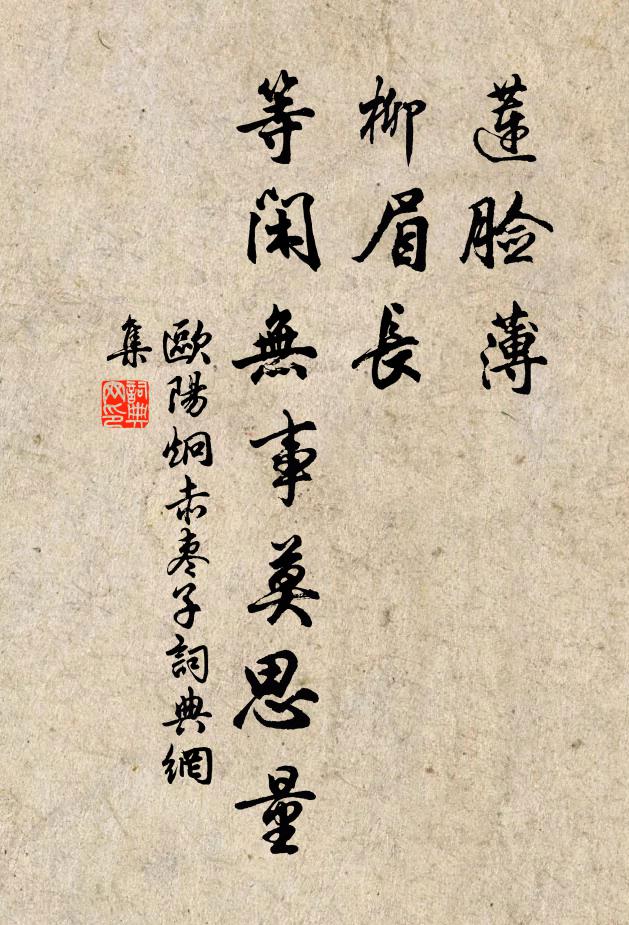 蓮臉薄
柳眉長
等閑無事莫思量
歐陽炯赤枣子詞典網
集
詞典网印